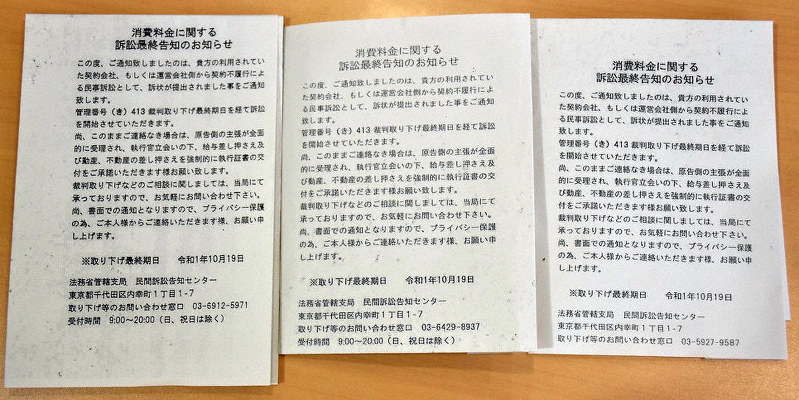 消費料金に関する
訴訟最終告知のお知らせ
この度、ご通知致しましたのは、貴方の利用されてい
た契約会社、もしくは運営会社側から契約不履行によ
る民事訴訟として、訴状が提出されました事をご通知
致します。
管理番号（き）413 裁判取り下げ最終期日を経て訴訟
を開始させていただきます。
尚、このままご連絡なき場合は、原告側の主張が全面
的に受理され、執行官立会いの下、給与差し押さえ及
び動産、不動産の差し押さえを強制的に執行証書の交
付をご承諾いただきます様お願い致します。
裁判取り下げなどのご相談に関しましては、当局にて
承っておりますので、お気軽にお問い合わせ下さい。
尚、書面での通知となりますので、プライバシー保護
の為、ご本人様からご連絡いただきます様、お願い申
し上げます。
※取り下げ最終期日　令和1年10月19日
法務省管轄支局　民間訴訟告知センター
東京都千代田区内幸町１丁目１-７
取り下げ等のお問い合わせ窓口　03-6912-5971
受付時間　9:00～20:00（日、祝日は除く）
消費料金に関する
訴訟最終告知のお知らせ
この度、ご通知致しましたのは、貴方の利用されてい
た契約会社、もしくは運営会社側から契約不履行によ
る民事訴訟として、訴状が提出されました事をご通知
致します。
管理番号（き）413 裁判取り下げ最終期日を経て訴訟
を開始させていただきます。
尚、このままご連絡なき場合は、原告側の主張が全面
的に受理され、執行官立会いの下、給与差し押さえ及
び動産、不動産の差し押さえを強制的に執行証書の交
付をご承諾いただきます様お願い致します。
裁判取り下げなどのご相談に関しましては、当局にて
承っておりますので、お気軽にお問い合わせ下さい。
尚、書面での通知となりますので、プライバシー保護
の為、ご本人様からご連絡いただきます様、お願い申
し上げます。
※取り下げ最終期日　令和1年10月19日
法務省管轄支局　民間訴訟告知センター
東京都千代田区内幸町１丁目１-７
取り下げ等のお問い合わせ窓口　03-6429-8937
受付時間　9:00～20:00（日、祝日は除く）
消費料金に関する
訴訟最終告知のお知らせ
この度、ご通知致しましたのは、貴方の利用されてい
た契約会社、もしくは運営会社側から契約不履行によ
る民事訴訟として、訴状が提出されました事をご通知
致します。
管理番号（き）413 裁判取り下げ最終期日を経て訴訟
を開始させていただきます。
尚、このままご連絡なき場合は、原告側の主張が全面
的に受理され、執行官立会いの下、給与差し押さえ及
び動産、不動産の差し押さえを強制的に執行証書の交
付をご承諾いただきます様お願い致します。
裁判取り下げなどのご相談に関しましては、当局にて
承っておりますので、お気軽にお問い合わせ下さい。
尚、書面での通知となりますので、プライバシー保護
の為、ご本人様からご連絡いただきます様、お願い申
し上げます。
※取り下げ最終期日　令和1年10月19日
法務省管轄支局　民間訴訟告知センター
東京都千代田区内幸町１丁目１-７
取り下げ等のお問い合わせ窓口　03-5927-9587